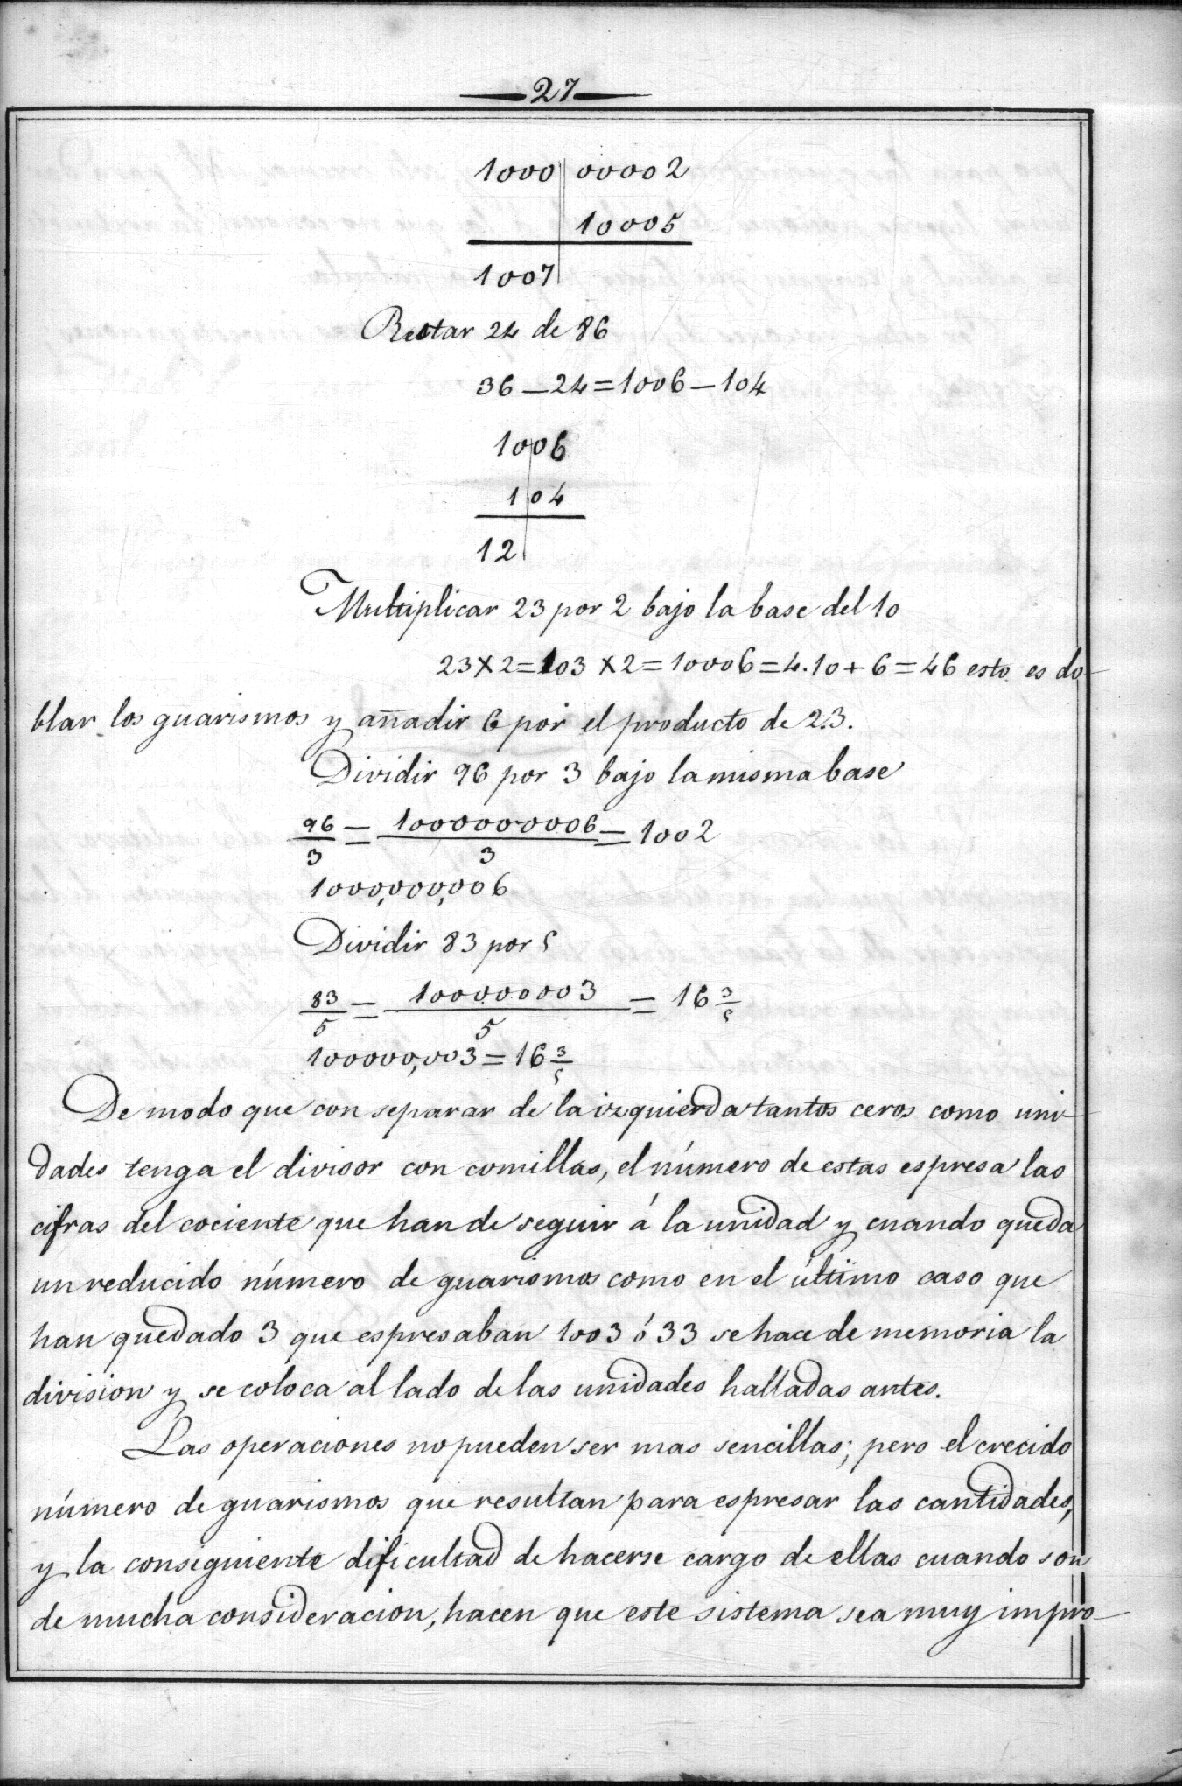 27
1000 00002
10005
1007
Restar 24 de 86
36 - 24 = 1006 - 104
1006
104
12
Multiplicar 23 por 2 bajo la base del 10
23 × 2 = 103 × 2 = 10006 = 4.10 + 6 = 46 esto es do-
blar los guarismos y añadir 6 por el producto de 2.3.
Dividir 96 por 3 bajo la misma base
96/3 = 10000000006/3 = 1002
1000,000,006
Dividir 83 por 5
83/5 = 1000000003/5 = 16 3/5
100000,003 = 16 3/5
De modo que con separar de la izquierda tantos ceros como uni-
dades tenga el divisor con comillas, el número de estas espresa las
cifras del cociente que han de seguir á la unidad y cuando queda
un reducido número de guarismos como en el último caso que
han quedado 3 que espresaban 1003 ó 33 se hace de memoria la
division y se coloca al lado de las unidades halladas antes.
Las operaciones no pueden ser mas sencillas; pero el crecido
número de guarismos que resultan para espresar las cantidades,
y la consiguiente dificultad de hacerse cargo de ellas cuando son
de mucha consideracion, hacen que este sistema sea muy impro-